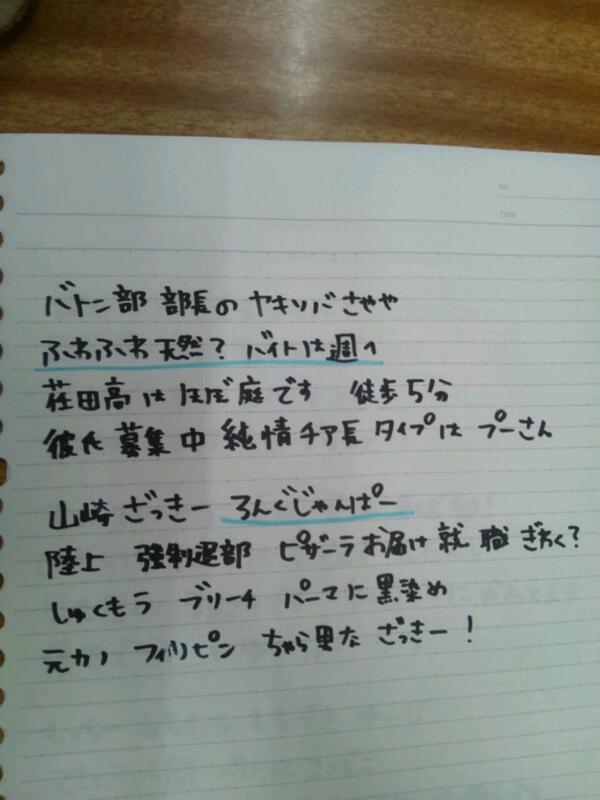 No.
Date
バトン部 部長の ヤキソバ さやや
ふわふわ 天然？ バイトは週1
荏田高は ほぼ庭です 徒歩5分
彼氏募集中 純情チア長 タイプは プーさん
山崎 ざっきー ろんぐじゃんぱー
陸上 強制退部 ピザーラお届け 就職 ぎわく？
しゅくもう ブリーチ パーマに黒染め
元カノ フィリピン ちゃら男な ざっきー！